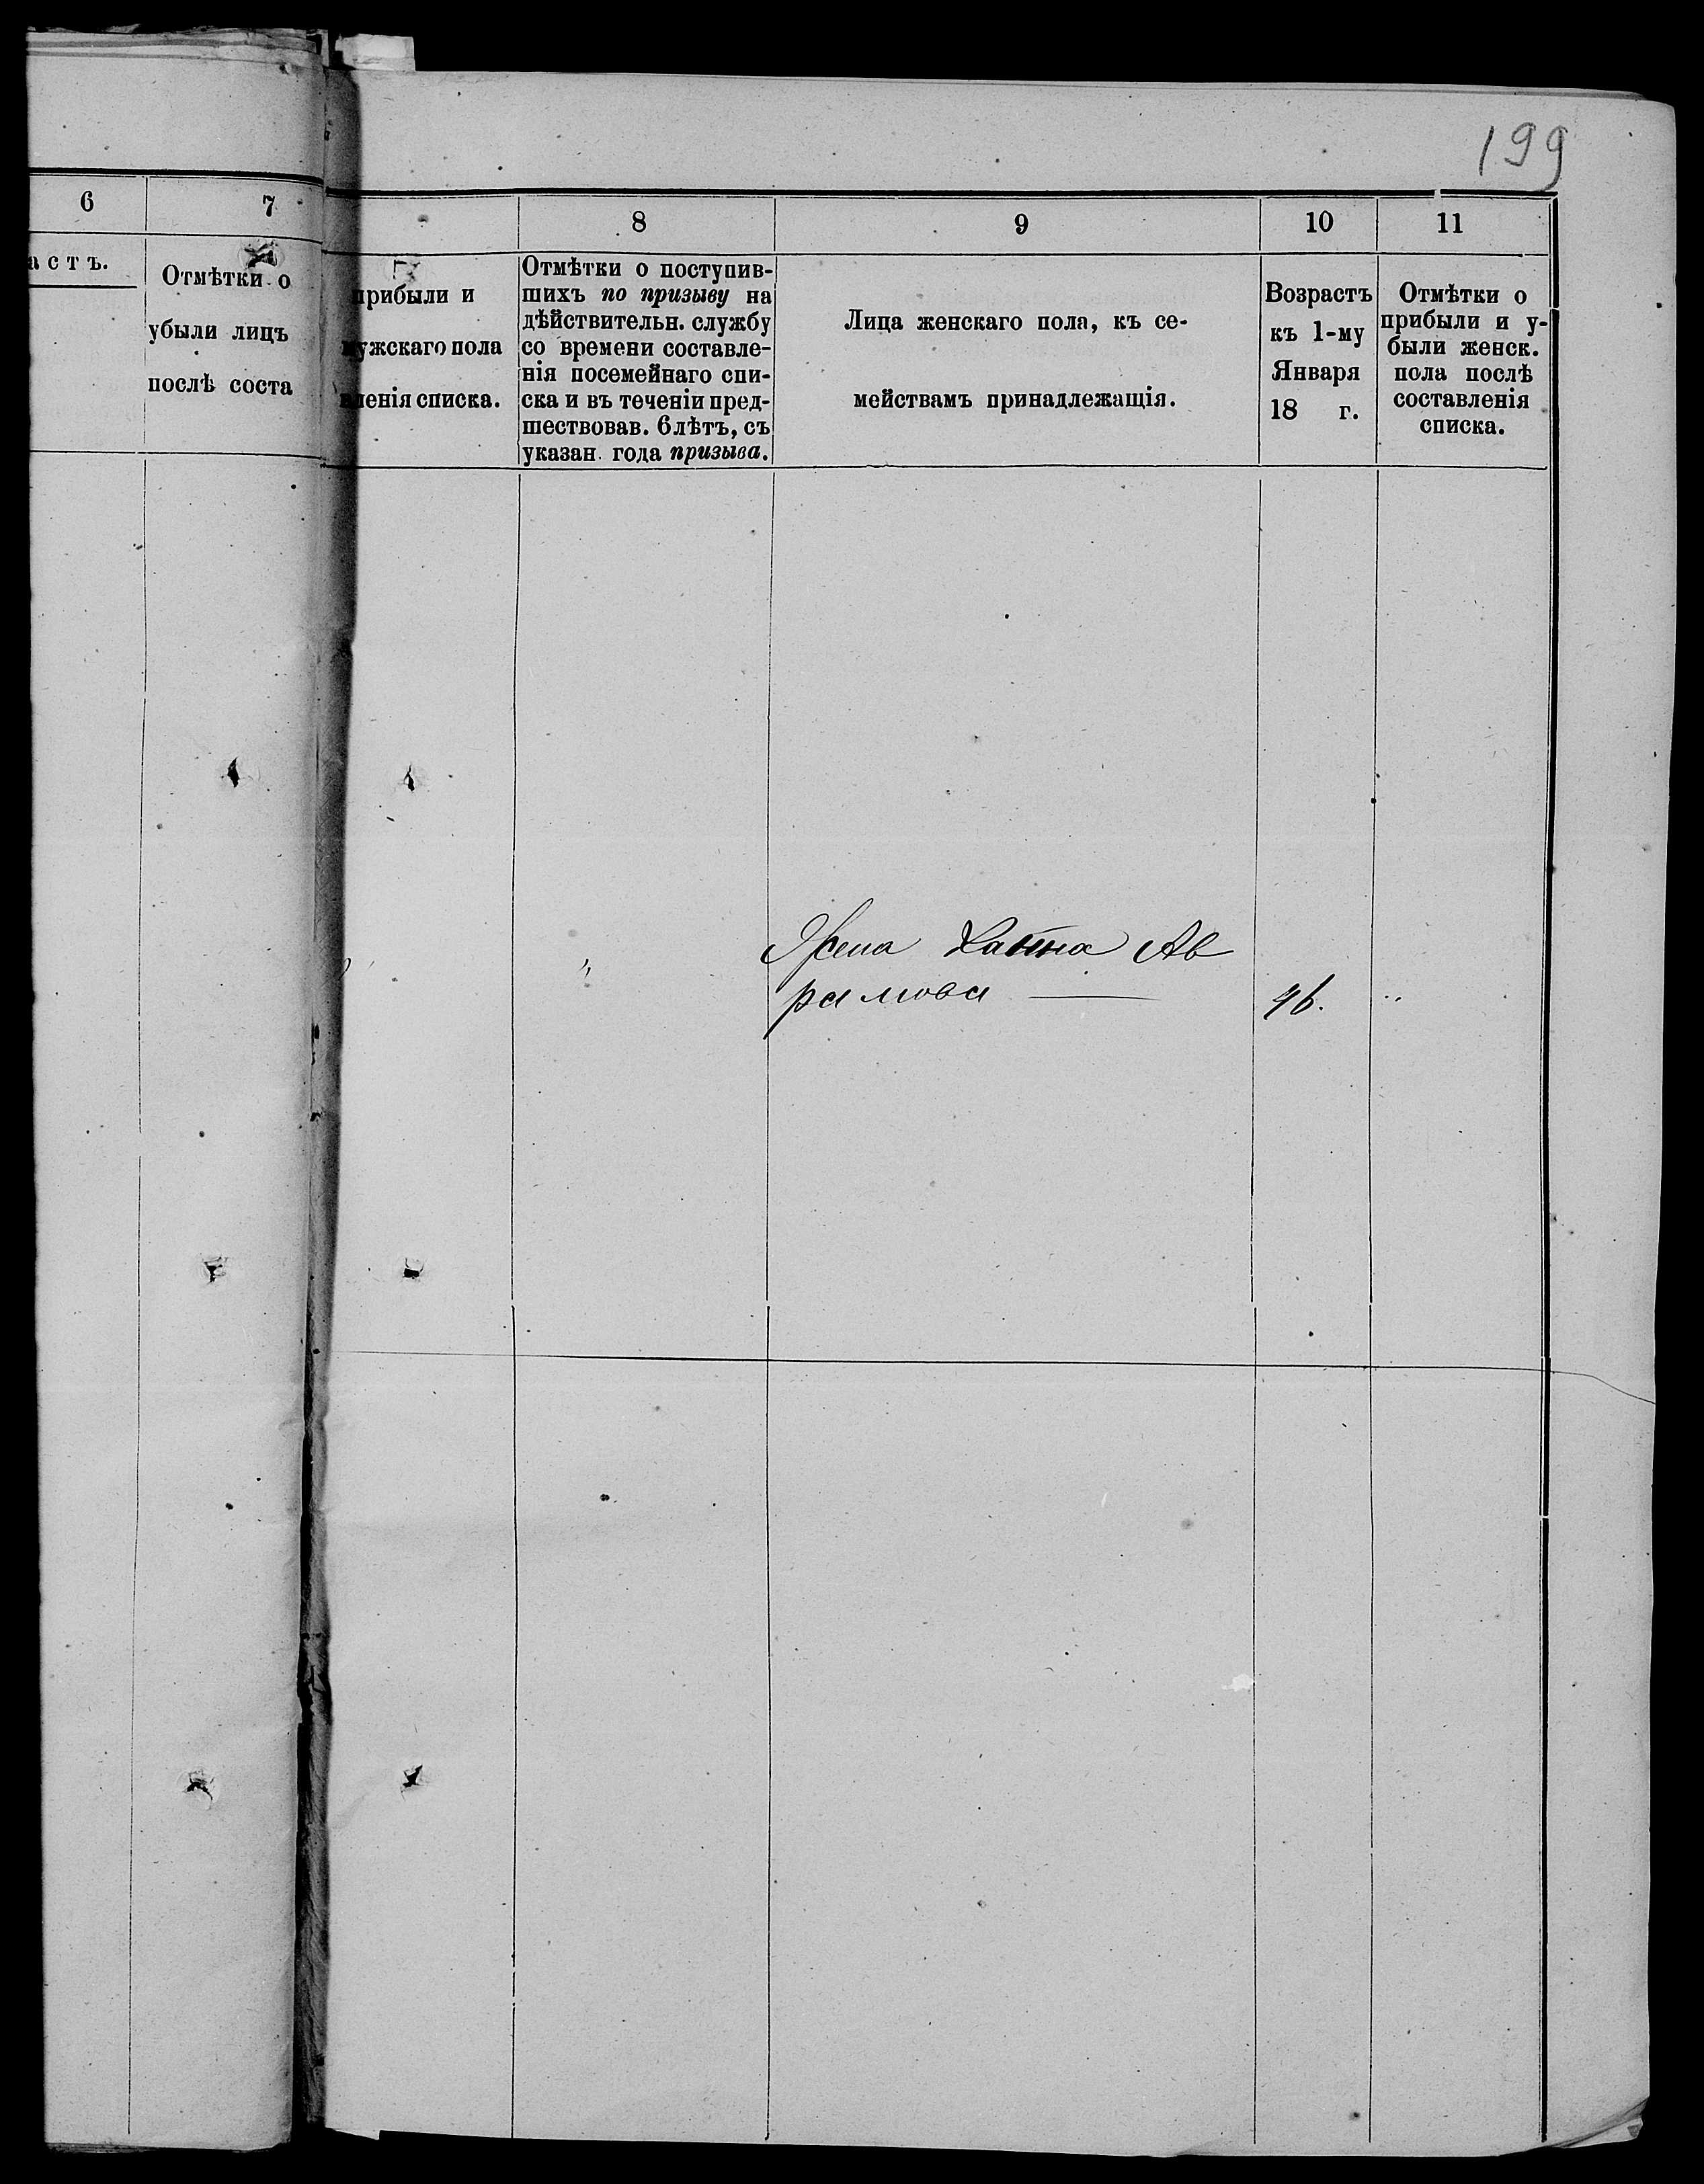 199
6
7
8
9
10
11
астъ.
Отмѣтки о
убыли лицъ
послѣ соста
прибыли и
мужскаго пола
вленія списка.
Отмѣтки о поступив-
шихъ по призыву на
дѣйствительн. службу
со времени составле-
нія посемейнаго спи-
ска и въ теченіи пред-
шествовав. 6 лѣтъ, съ
указан. года призыва.
Лица женскаго пола, къ се-
мействамъ принадлежащія.
Возрастъ
къ 1-му
Января
18 г.
Отмѣтки о
прибыли и у-
были женск.
пола послѣ
составленія
списка.
Жена Ав
рамова
46.